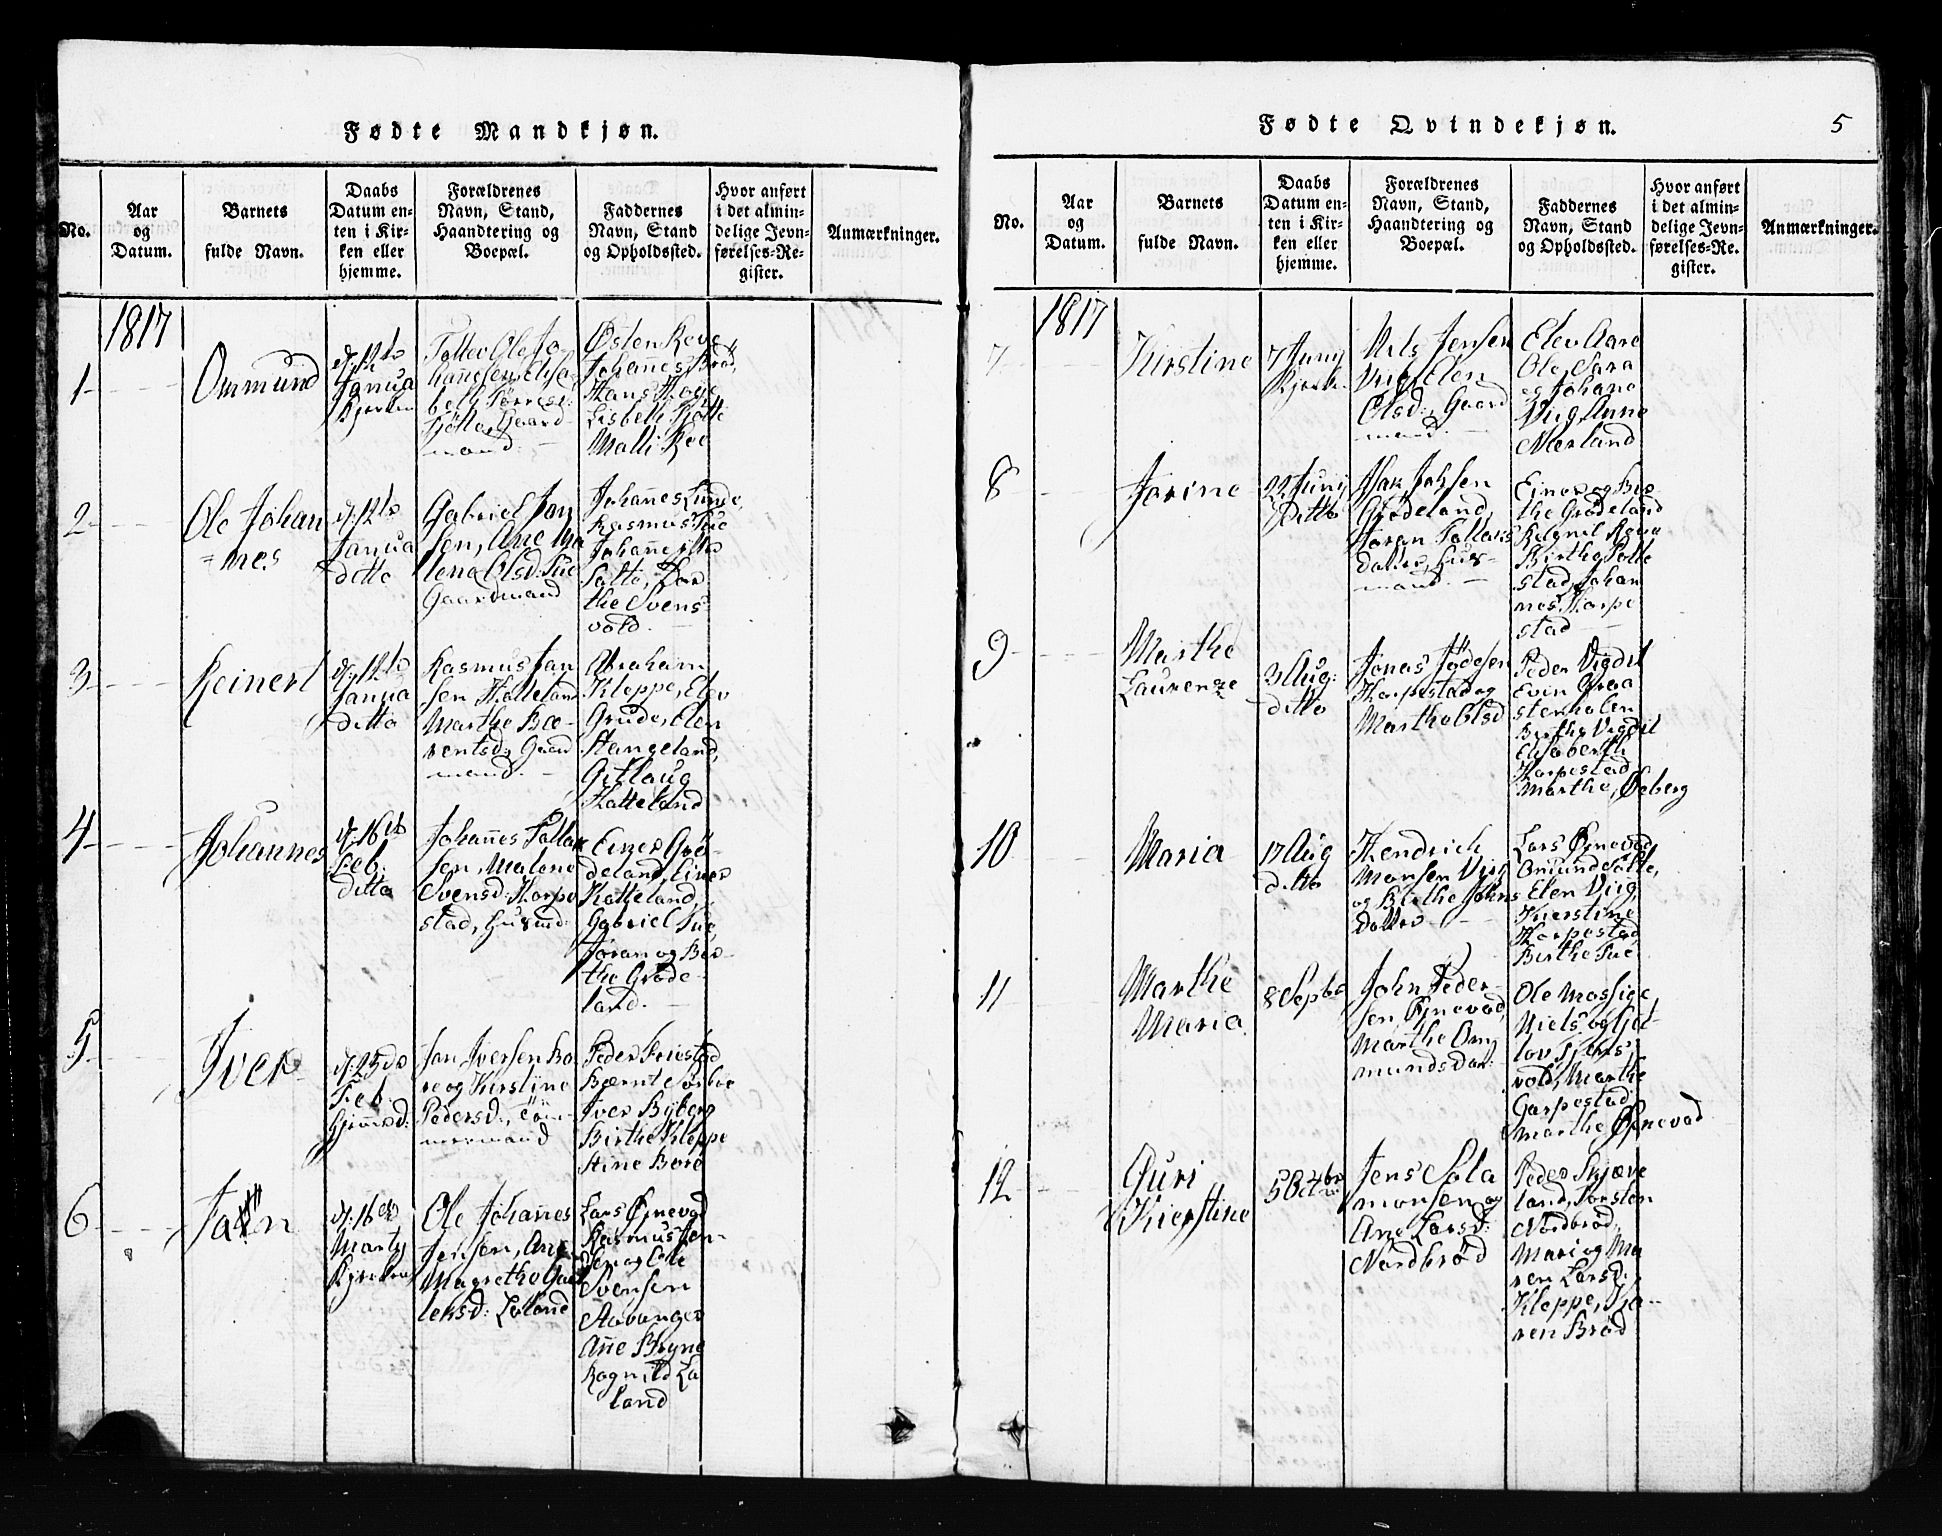 Fødte Mandkjøn.
No.
Aar
og
Datum.
Barnets
fulde Navn.
Daabs
Datum en-
ten i Kir-
ken eller
hjemme.
Forældrenes
Navn, Stand,
Haandtering og
Boepæl.
Faddernes
Navn, Stand
og Opholdssted.
Hvor anført
i det almin-
delige Jevn-
førelses-Re-
gister.
Anmærkninger.
1817
1
Ommund
Janua
Østen Reve
Johañes Brød,
Hans Hage
Lisbeth
Malli Ree
2
Ole Johan
=nes
Janua
ditto
Gabriel Jan
sen, Ane Ma
lena Olsd: Tue
Gaardmand
Johañes Lunde,
Rasmus Tue
the Svens
vold.
3
Reinert
Janua
ditto
Rasmus Jan
sen Hatteland
Marthe Bæ-
rentsd: Gaard
mand.
Abraham
Kleppe, Elev
Grude, Elen
Stangeland,
Gitlaug
Hatteland
4
Johannes
d: 16de
Feb.
ditto
Johañes Tollak
sen, Malene
Svensd: Horpe
stad, Husmd:
Einer Grö-
deland, Einer
Hatteland,
Gabriel Tue,
Joran og Ber-
the Grøde-
land.
5
Iver
d: 23de
Feb.
Jan Iversen Bo
re og Kirstine
Pedersd:, Töm-
mermand
Peder Friestad
Bærnt Sørboe
Iver Byberg
Birthe Kleppe
Stine Bore
6
d: 16de
Marty
Kjerken
Ole Johañes
Jensen, Ane
Magrethe
Laland
Lars Øgnevad
Rasmus Jen-
sen og Ole
Svensen
Stavanger
Añe Bryne
Ragnild La
land
Fødte Qvindekjøn.
5
No.
Aar
og
Datum.
Barnets
fulde Navn.
Daabs
Datum en-
ten i Kir-
ken eller
hjemme.
Forældrenes
Navn, Stand,
Haandtering og
Boepæl.
Faddernes
Navn, Stand
og Opholdssted.
Hvor anført
i det almin-
delige Jevn-
førelses-Re-
gister.
Anmærkninger.
1817
7
Kirstine
7 Juny
Nils Jensen
Viig Elen
Olsd:, Gaard
mand.
Elev Aare
Ole Sara
og Johane
Viig Anne
Nærland
8
Jorine
22 Juny
ditto
Grødeland,
Joran Tollaks
datter, Hus-
mand.
Einer og Bir
the Grødeland
Birthe Tolle
stad, Johan
nes Horpe
stad
9
Marthe
Laurenze
3 Aug:
ditto
Jonas
Horpestad og
Marthe Olsd
Peder Vigdel
Evin Graa
stenholen
Birthe Vigdel
Elisaberth
Horpestad
Marthe, Øeberg
10
Maria
17 Aug
ditto
Hendrich
Monsen Viig
og Birthe Johns
datter
Lars Øgnevad
Omund Salte,
Elen Viig,
Kierstine
Horpestad
Birthe Tue
11
Marthe
Maria
8 Septbr
John Peder-
sen Øgnevad,
Marthe Om
mundsdar.
Ole Mossige,
Niels og
vold, Marthe
Garpestad
Marthe Øgnevad
12
Guri
Kierstine
5 Octobr
Jens Sala
monsen og
Ane Larsd:
Nordbrød
Peder Skjæve
land, Torsten
Nordbrød,
Mari og Ma
ren Larsd:
Kleppe, Ka-
ren Brød